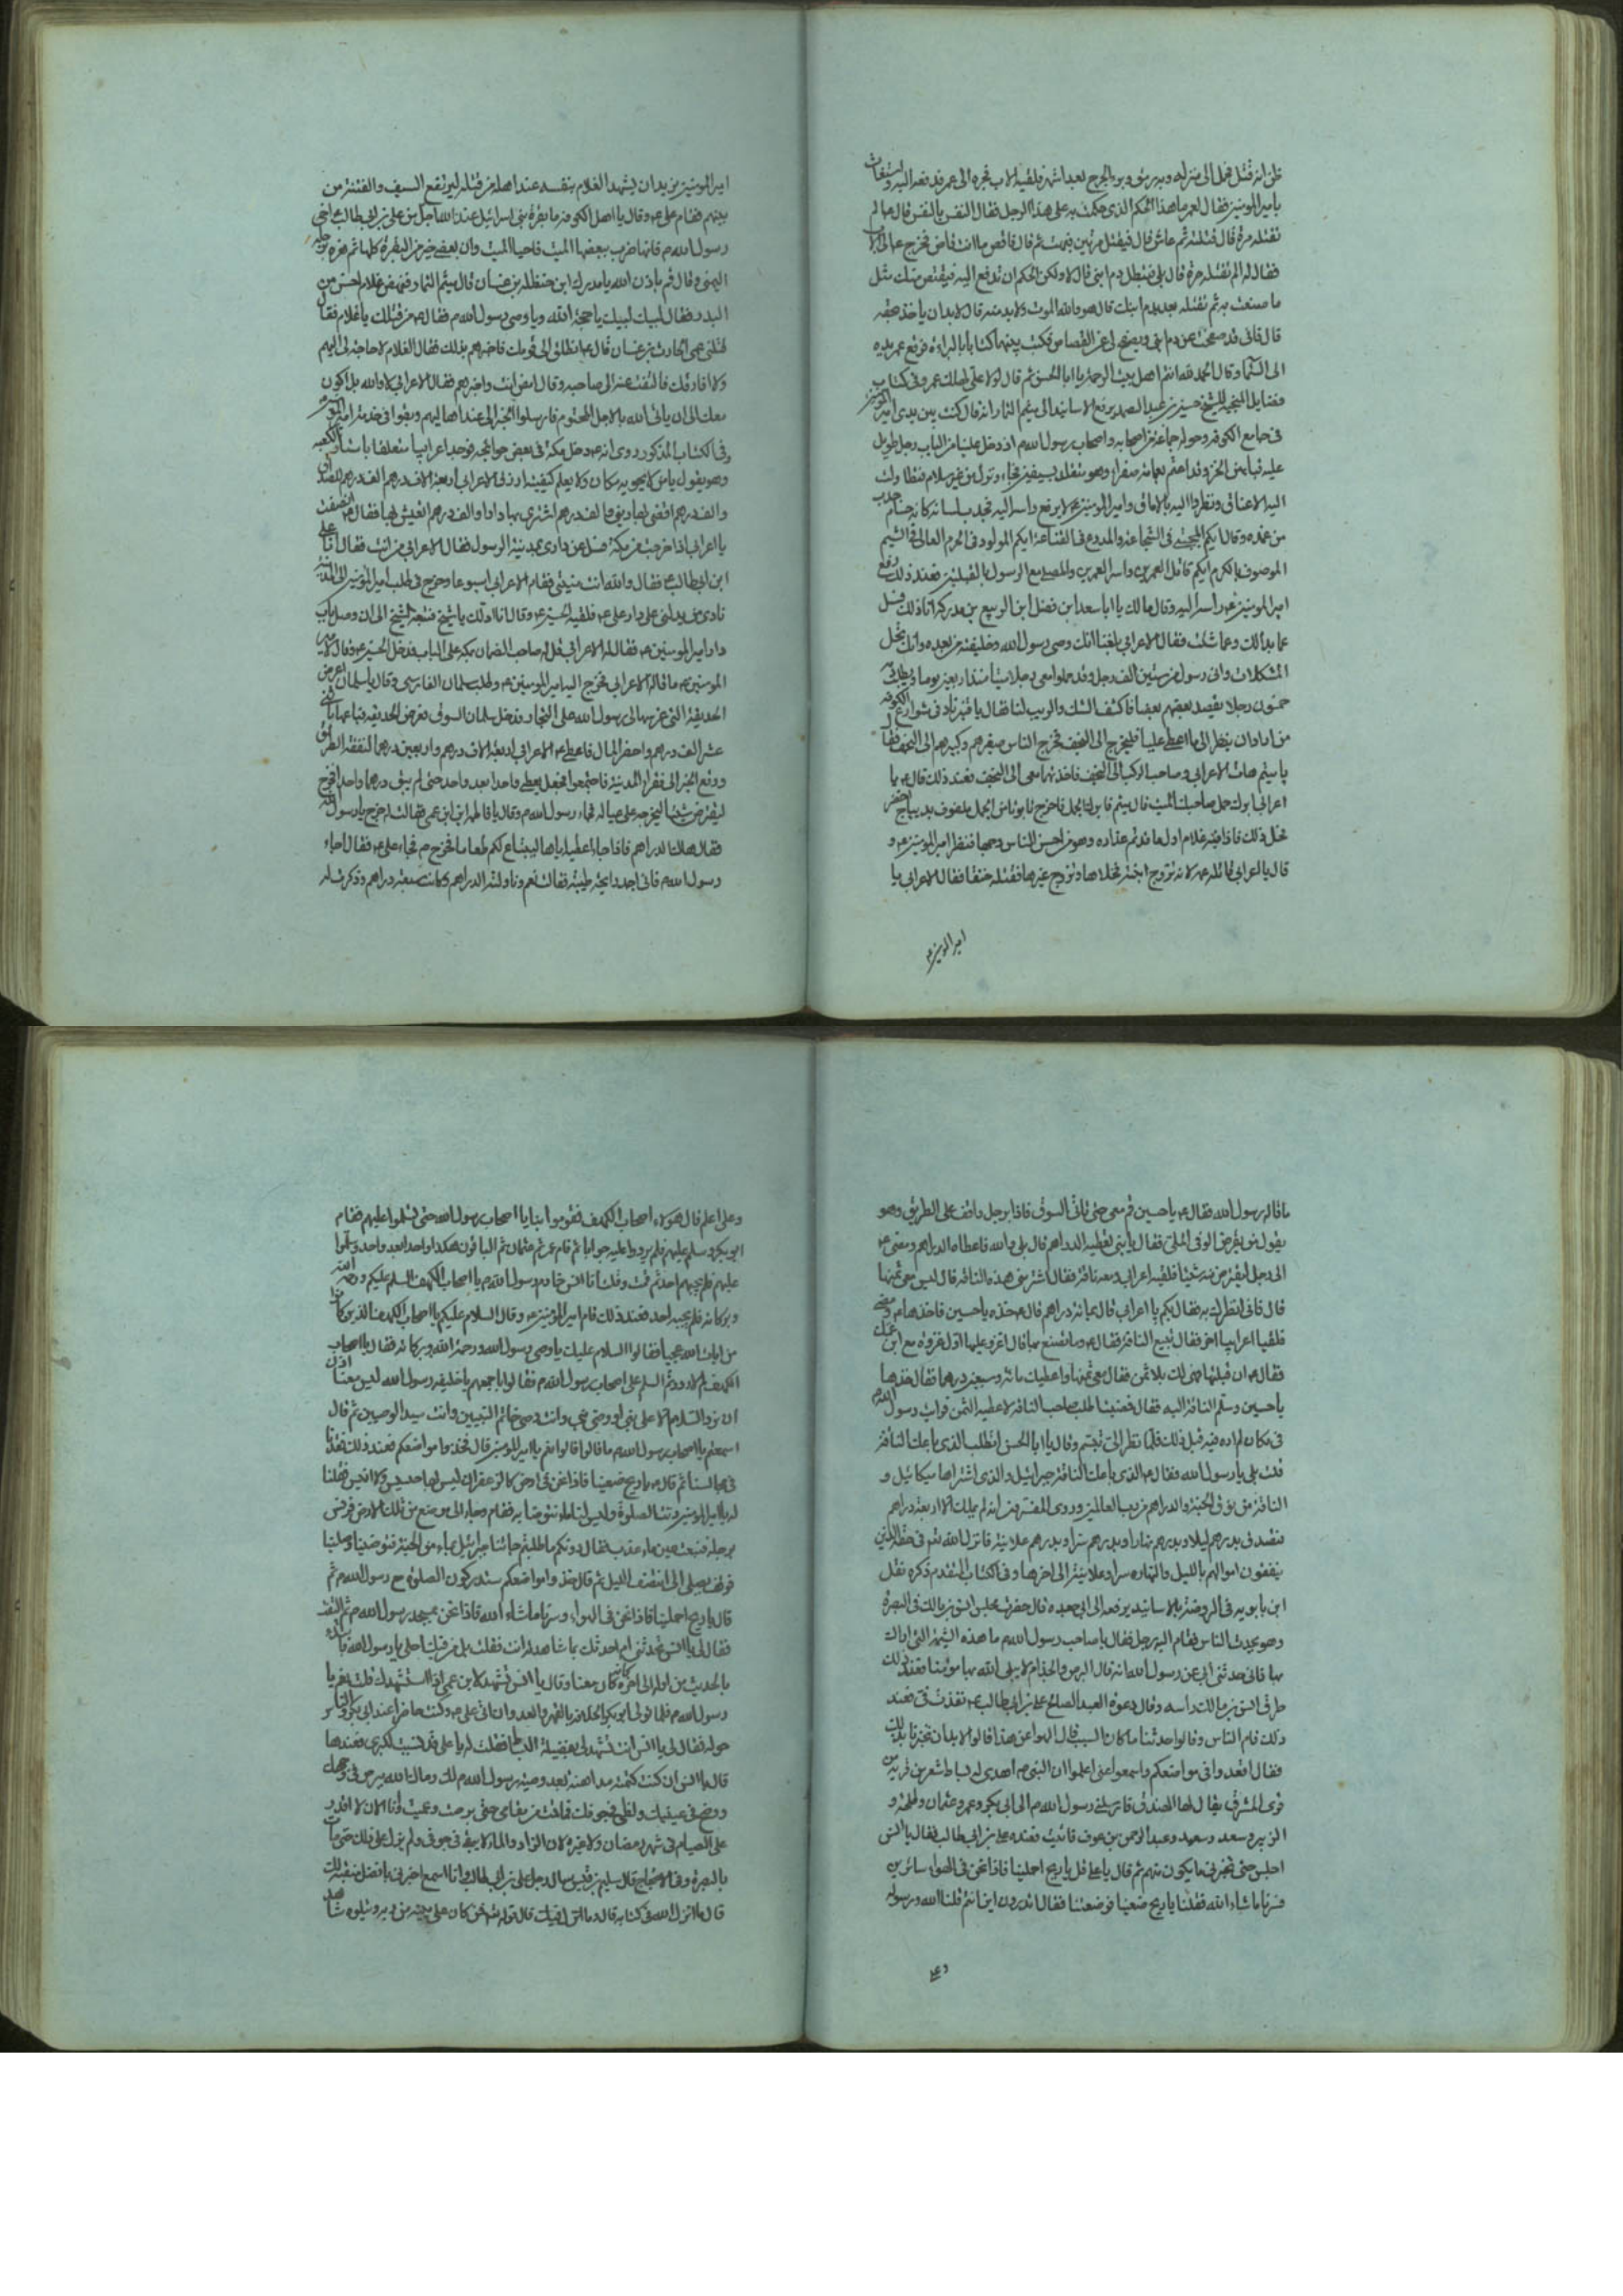 ظن انه قتل فحمل الى منزله وبه رمق وبرء الجرح بعد اشهر فلقيه الاب فجره الى عمر فدفعه اليه واستغاث
يا امير المومنين فقال لعمر ما هذا الحكم الذى حكمت به على هذا الرجل فقال النفس بالنفس قال ع الم
تقتله مرة قال قتلته ثم عاش قال فيقتل مرتين فبهت ثم قال فاقض ما انت قاض فخرج ع الى الاب
فقال له الم تقتله مرة قال بلى فيبطل دم ابنى قال لا ولكن الحكم ان تدفع اليه فيقتص منك مثل
ما صنعت به ثم تقتله بعد بدم ابنك قال هو والله الموت ولا بد منه قال لا بد ان ياخذ حقه
قال فانى قد صفحت عن دم ابنى ويصفح لى عن القصاص فكتب بينهما كتابا بالبراءة فرفع عمر يده
الى السماء وقال الحمد لله انتم اهل بيت الرحمة يا ابا الحسن ثم قال لولا على لهلك عمر وفى كتاب
فضايل للشيخ حسين بن عبد الصمد يرفع الاسانيد الى ميثم التمار انه قال كنت بين يدى امير المومنين
فى جامع الكوفه وحوله جماعة من اصحابه واصحاب رسول الله ص اذ دخل علينا من الباب رجل طويل
عليه قباء من الخز وقد اعتم بعمامة صفراء وهو متقلد بسيفين فجاء ونزل من غير سلام فتطاولت
اليه الاعناق ونظروا اليه بالاماق وامير المومنين ع لا يرفع راسه اليه فحدث بلسانه كانه حسام جذب
من غمده وقال ايكم المجتبى فى الشجاعة والمدرع فى القناعة ايكم المولود فى الحرم العالى فى الشيم
الموصوف بالكرم ايكم قاتل العمرين واسر العمرين والمصلى مع الرسول بالقبلتين فعند ذلك رفع
امير المومنين ع راسه اليه وقال مالك يا ابا سعد ابن فضل ابن الربيع بن مدركه انا ذلك فسل
عما بدالك وعما شئت فقال الاعرابى بلغنا انك وصى رسول الله وخليفته من بعده وانك تحل
المشكلات وانى رسول من ستين الف رجل وقد حملوا معى رجلا ميتا منذ اربعين يوما ويطلب
خمسون رجلا يقصد بعضهم بعضا فاكشف الشك والريب لنا فقال يا قنبر ناد فى شوارع الكوفه
من اراد ان ينظر الى ما اعطى عليا فليخرج الى النجف فخرج الناس صغيرهم وكبيرهم الى النجف فقال
يا ميثم هات الاعرابى وصاحبه الركب الى النجف فاخذتهما معى الى النجف فعند ذلك قال ع يا
اعرابى ابرك جمل صاحبك الميت قال ميثم فابرك الجمل فاخرج تابوتا من الجمل ملفوف بديباج اخضر
فحل ذلك فاذا فيه غلام اول ما تم عذاره وهو من احسن الناس وجها فنظر امير المومنين ع و
قال يا اعرابى قاتله عمه لانه تزوج ابنته فخلاها وتزوج غيرها فقتله حنقا فقال الاعرابى يا
امير المومنين ع
امير المومنين نريد ان يشهد الغلام بنفسه عند اهله من قتله ليرتفع السيف والفتنة من
بينهم فقام على ع وقال يا اهل الكوفه ما بقرة بنى اسرائيل عند الله اجل من على بن ابى طالب ع اخى
رسول الله ص فانها ضرب ببعضها الميت فاحيا الميت وان بعضى خير من البقرة كلها ثم هزه برجله
اليمنى وقال قم باذن الله يا مدرك ابن حنظله بن غسان قال ميثم التمار فنهض غلام احسن من
البدر فقال لبيك لبيك يا حجة الله ويا وصى رسول الله ص فقال ع من قتلك يا غلام فقال
قتلنى عمى الحارث بن غسان قال ع انطلق الى قومك فاخبرهم بذلك فقال الغلام لا حاجة لى اليهم
ولا افارقك فالتفت ع الى صاحبه وقال امض انت واخبرهم فقال الاعرابى لا والله بل اكون
معك الى ان ياتى الله بالاجل المحتوم فارسلوا الخبر الى عند اهاليهم وبقوا فى خدمة امير المومنين
وفى الكتاب المذكور روى انه ع دخل مكه فى بعض حوائجه فوجد اعرابيا متعلقا باستار الكعبه
وهو يقول يا من لا يحويه مكان ولا يعلم كيفيته ارزق الاعرابى اربعة الاف درهم الف درهم للصداق
والف درهم اقضى بها دينى والف درهم اشترى بها دارا والف درهم اتعيش بها فقال ع انصفت
يا اعرابى اذا خرجت من مكة فسل عن دارى بمدينة الرسول فقال الاعرابى من انت فقال انا على
ابن ابى طالب ع فقال والله انت منيتى فقام الاعرابى اسبوعا وخرج فى طلب امير المومنين الى المدينة
نادى من يدلنى على دار على ع فلقيه الحسين ع وقال انا ادلك يا شيخ فتبعه الشيخ الى ان وصل باب
دار امير المومنين ع فقال له الاعرابى قل له صاحب الضمان بمكه على الباب فدخل الحسين ع وقال لامير
المومنين ع ما قاله الاعرابى فخرج اليه امير المومنين ع وطلب سلمان الفارسى وقال يا سلمان اعرض
الحديقة التى غرسها لى رسول الله على التجار فدخل سلمان السوق فعرض الحديقه فباعها باثنى
عشر الف درهم واحضر المال فاعطى ع الاعرابى اربعة الاف درهم واربعين درهما لنفقة الطريق
ووقع الخبر الى فقراء المدينة فاجتمعوا فجعل يعطى واحدا بعد واحد حتى لم يبق درهما واحدا فخرج
ليقترض شيئا ليخرجه على عياله فجاء رسول الله ص وقال يا فاطمه اين ابن عمى فقالت خرج يا رسول الله
فقال هاك الدراهم فاذا جاء اعطيه اياها ليبتاع لكم طعاما فخرج ص فجاء على ع فقال اجاء
رسول الله ص فانى اجد رائحة طيبة فقالت نعم وناولته الدراهم وكانت سبعة دراهم وذكرت له
ما قاله رسول الله فقال ع يا حسين قم معى حتى ناتى السوق فاذا برجل واقف على الطريق وهو
يقول من يقرض الوفى الملى فقال يا بنى نعطيه الدراهم قال بلى والله فاعطاه الدراهم ومضى ع
الى رجل ليقترض منه شيئا فلقيه اعرابى ومعه ناقة فقال اشتر منى هذه الناقة قال ليس معى ثمنها
قال فانى انظرك به فقال بكم يا اعرابى قال بمائة دراهم قال ع خذه يا حسين فاخذها ع ومضى
فلقيا اعرابيا اخر فقال تبيع الناقة فقال ع وما تصنع بها قال اغزو عليها اول غزوة مع ابن عمك
فقال ع ان قبلتها فهى لك بلا ثمن فقال معى ثمنها واعطيك مائة وسبعين درهما فقال خذها
يا حسين وسلم الناقة اليه فقال فمضينا طلب صاحب الناقة لاعطيه الثمن فرايت رسول الله ص
فى مكان لم اره فيه قبل ذلك فلما نظر الى تبسم وقال يا ابا الحسن اتطلب الذى باعك الناقة
قلت بلى يا رسول الله فقال ع الذى باعك الناقة جبرائيل والذى اشتراها ميكائيل و
الناقة من نوق الجنة والدراهم من رب العالمين وروى المفسرون انه لم يملك الا اربعة دراهم
فتصدق بدرهم ليلا وبدرهم نهارا وبدرهم سرا وبدرهم علانية فانزل الله تع فى حقه الذين
ينفقون اموالهم بالليل والنهار سرا وعلانية الى اخرها وفى الكتاب المتقدم ذكره نقل
ابن بابويه فى الروضه بالاسانيد يرفعه الى ابى جعده قال حضرت مجلس انس بن مالك فى البصرة
وهو يحدث الناس فقام اليه رجل فقال يا صاحب رسول الله ص ما هذه الشيمة التى اراك
بها فانى حدثنى ابى عن رسول الله انه قال البرص والجذام لا يبلى الله بها مومنا فعند ذلك
طرق انس بن مالك راسه وقال دعوة العبد الصالح على بن ابى طالب ع نفذت فى فعند
ذلك قام الناس وقالوا حدثنا ما كان السبب قال الهوا عن هذا قالوا لا بد ان تخبرنا بذلك
فقال اقعدوا فى مواضعكم واسمعوا منى اعلموا ان النبى ص اهدى له بساط شعر من قرية من
قرى المشرق يقال لها الهندف فارسلنى رسول الله ص الى ابى بكر وعمر وعثمان وطلحة و
الزبير وسعد وسعيد وعبد الرحمن بن عوف فاتيت وعنده على بن ابى طالب فقال يا انس
اجلس حتى تخبرنى بما يكون منهم ثم قال يا على قل يا ريح احملينا فاذا نحن فى الهواء سائرين
فسرنا ما شاء الله فقلنا يا ريح ضعينا فوضعتنا فقال اتدرون اين انتم قلنا الله ورسوله
وعلى
وعلى اعلم قال هولاء اصحاب الكهف فقوموا بنا يا اصحاب رسول الله حتى تسلموا عليهم فقام
ابو بكر وسلم عليهم فلم يردوا عليه جوابا ثم قام عمر ثم عثمان ثم الباقون هكذا واحدا بعد واحد وسلموا
عليهم فلم يجبهم احد ثم قمت وقلت انا انس خادم رسول الله ص يا اصحاب الكهف السلم عليكم ورحمة الله
وبركاته فلم يجبه احد فعند ذلك قام امير المومنين ع وقال السلام عليكم يا اصحاب الكهف الذين كانوا
من ايات الله عجبا فقالوا السلام عليك يا وصى رسول الله ورحمة الله وبركاته فقال يا اصحاب
الكهف لم لا رددتم السلم على اصحاب رسول الله ص فقالوا باجمعهم يا خليفة رسول الله ليس معنا اذن
ان نرد السلام الا على نبى او وصى نبى وانت وصى خاتم النبيين وانت سيد الوصيين ثم قال
اسمعتم يا اصحاب رسول الله ص ما قالوا قالوا نعم يا امير المومنين قال فخذوا مواضعكم فعند ذلك قعدنا
فى مجالسنا ثم قال ع يا ريح ضعينا فاذا نحن فى ارض كالزعفران ليس بها حسيس ولا انيس فقلنا
له يا امير المومنين دنت الصلوة وليس لنا ماء نتوضا به فقام وجاء الى موضع من تلك الارض فرفس
برجله فنبعت عين ماء عذب فقال دونكم ما طلبتم جاءنا جبرائيل بماء من الجنة فتوضينا وصلينا
فوقف يصلى الى انتصف الليل ثم قال خذوا مواضعكم ستدركون الصلوة مع رسول الله ص ثم
قال يا ريح احملينا فاذا نحن فى الهواء وسرنا ما شاء الله فاذا نحن بمسجد رسول الله ص ثم التفت
فقال لى يا انس تحدثنى ام احدثك بما شاهدته انت فقلت بل من فيك احلى يا رسول الله فابتدا
بالحديث من اوله الى اخره كانه كان معنا وقال يا انس تشهد لابن عمى اذا استشهدك قلت نعم يا
رسول الله ص فلما تولى ابو بكر الخلافة بالقهر والعدوان اتى على ع وكنت حاضرا عند ابى بكر والناس
حوله فقال لى يا انس انت تشهد لى بفضيلة البساط فقلت له يا على قد نسيت لكبرى فعندها
قال يا انس ان كنت كتمته مداهنة بعد وصية رسول الله ص لك رماك الله ببرص فى وجهك
ووضح فى عينيك ولظى فى جوفك فما قمت من مقامى حتى برصت وعميت وانا الان لا اقدر
على الصيام فى شهر رمضان ولا غيره لان الزاد والماء لا يبقى فى جوفى ولم يزل على ذلك حتى مات
بالبصرة وفى الاحتجاج قال سليم بن قيس سال رجل على بن ابى طالب وانا اسمع اخبرنى بافضل منقبة لك
قال ما انزل الله فى كتابه قال وما انزل فيك قال قوله تع افمن كان على بينة من ربه ويتلوه شاهد